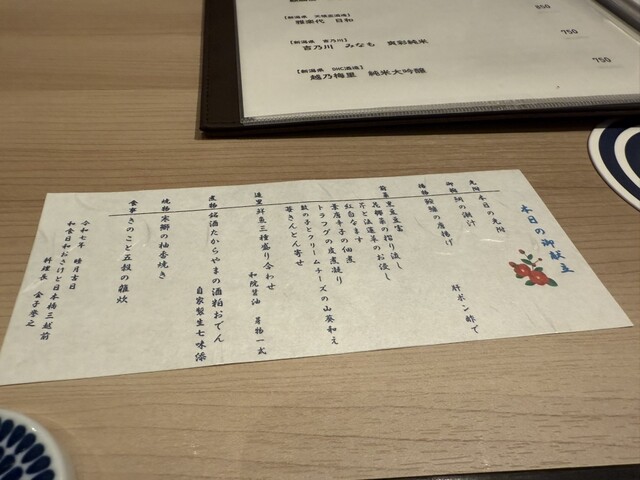 【新潟県　天領盃酒造】
雅楽代　日和
850
【新潟県　吉乃川】
吉乃川　みなも　爽彩純米
750
【新潟県　DHC酒造】
越乃梅里　純米大吟醸
750
本日の御献立
先附　本日の先附
御椀　鯛の潮汁
揚物　鮟鱇の唐揚げ
肝ポン酢で
前菜　黒豆豆富
花椰菜の摺り流し
芹と法蓮草のお浸し
紅白なます
葉唐辛子の佃煮
トラフグの皮煮凝り
数の子とクリームチーズの山葵和え
栗きんとん寄せ
造里　鮮魚三種盛り合わせ
和院醤油　芽物一式
煮物　銘酒たからやまの酒粕おでん
自家製生七味添
焼物　寒鰤の柚香焼き
食事　きのこと五穀の雑炊
令和七年　睦月吉日
和食日和おさけと日本橋三越前
料理長　金子孝之